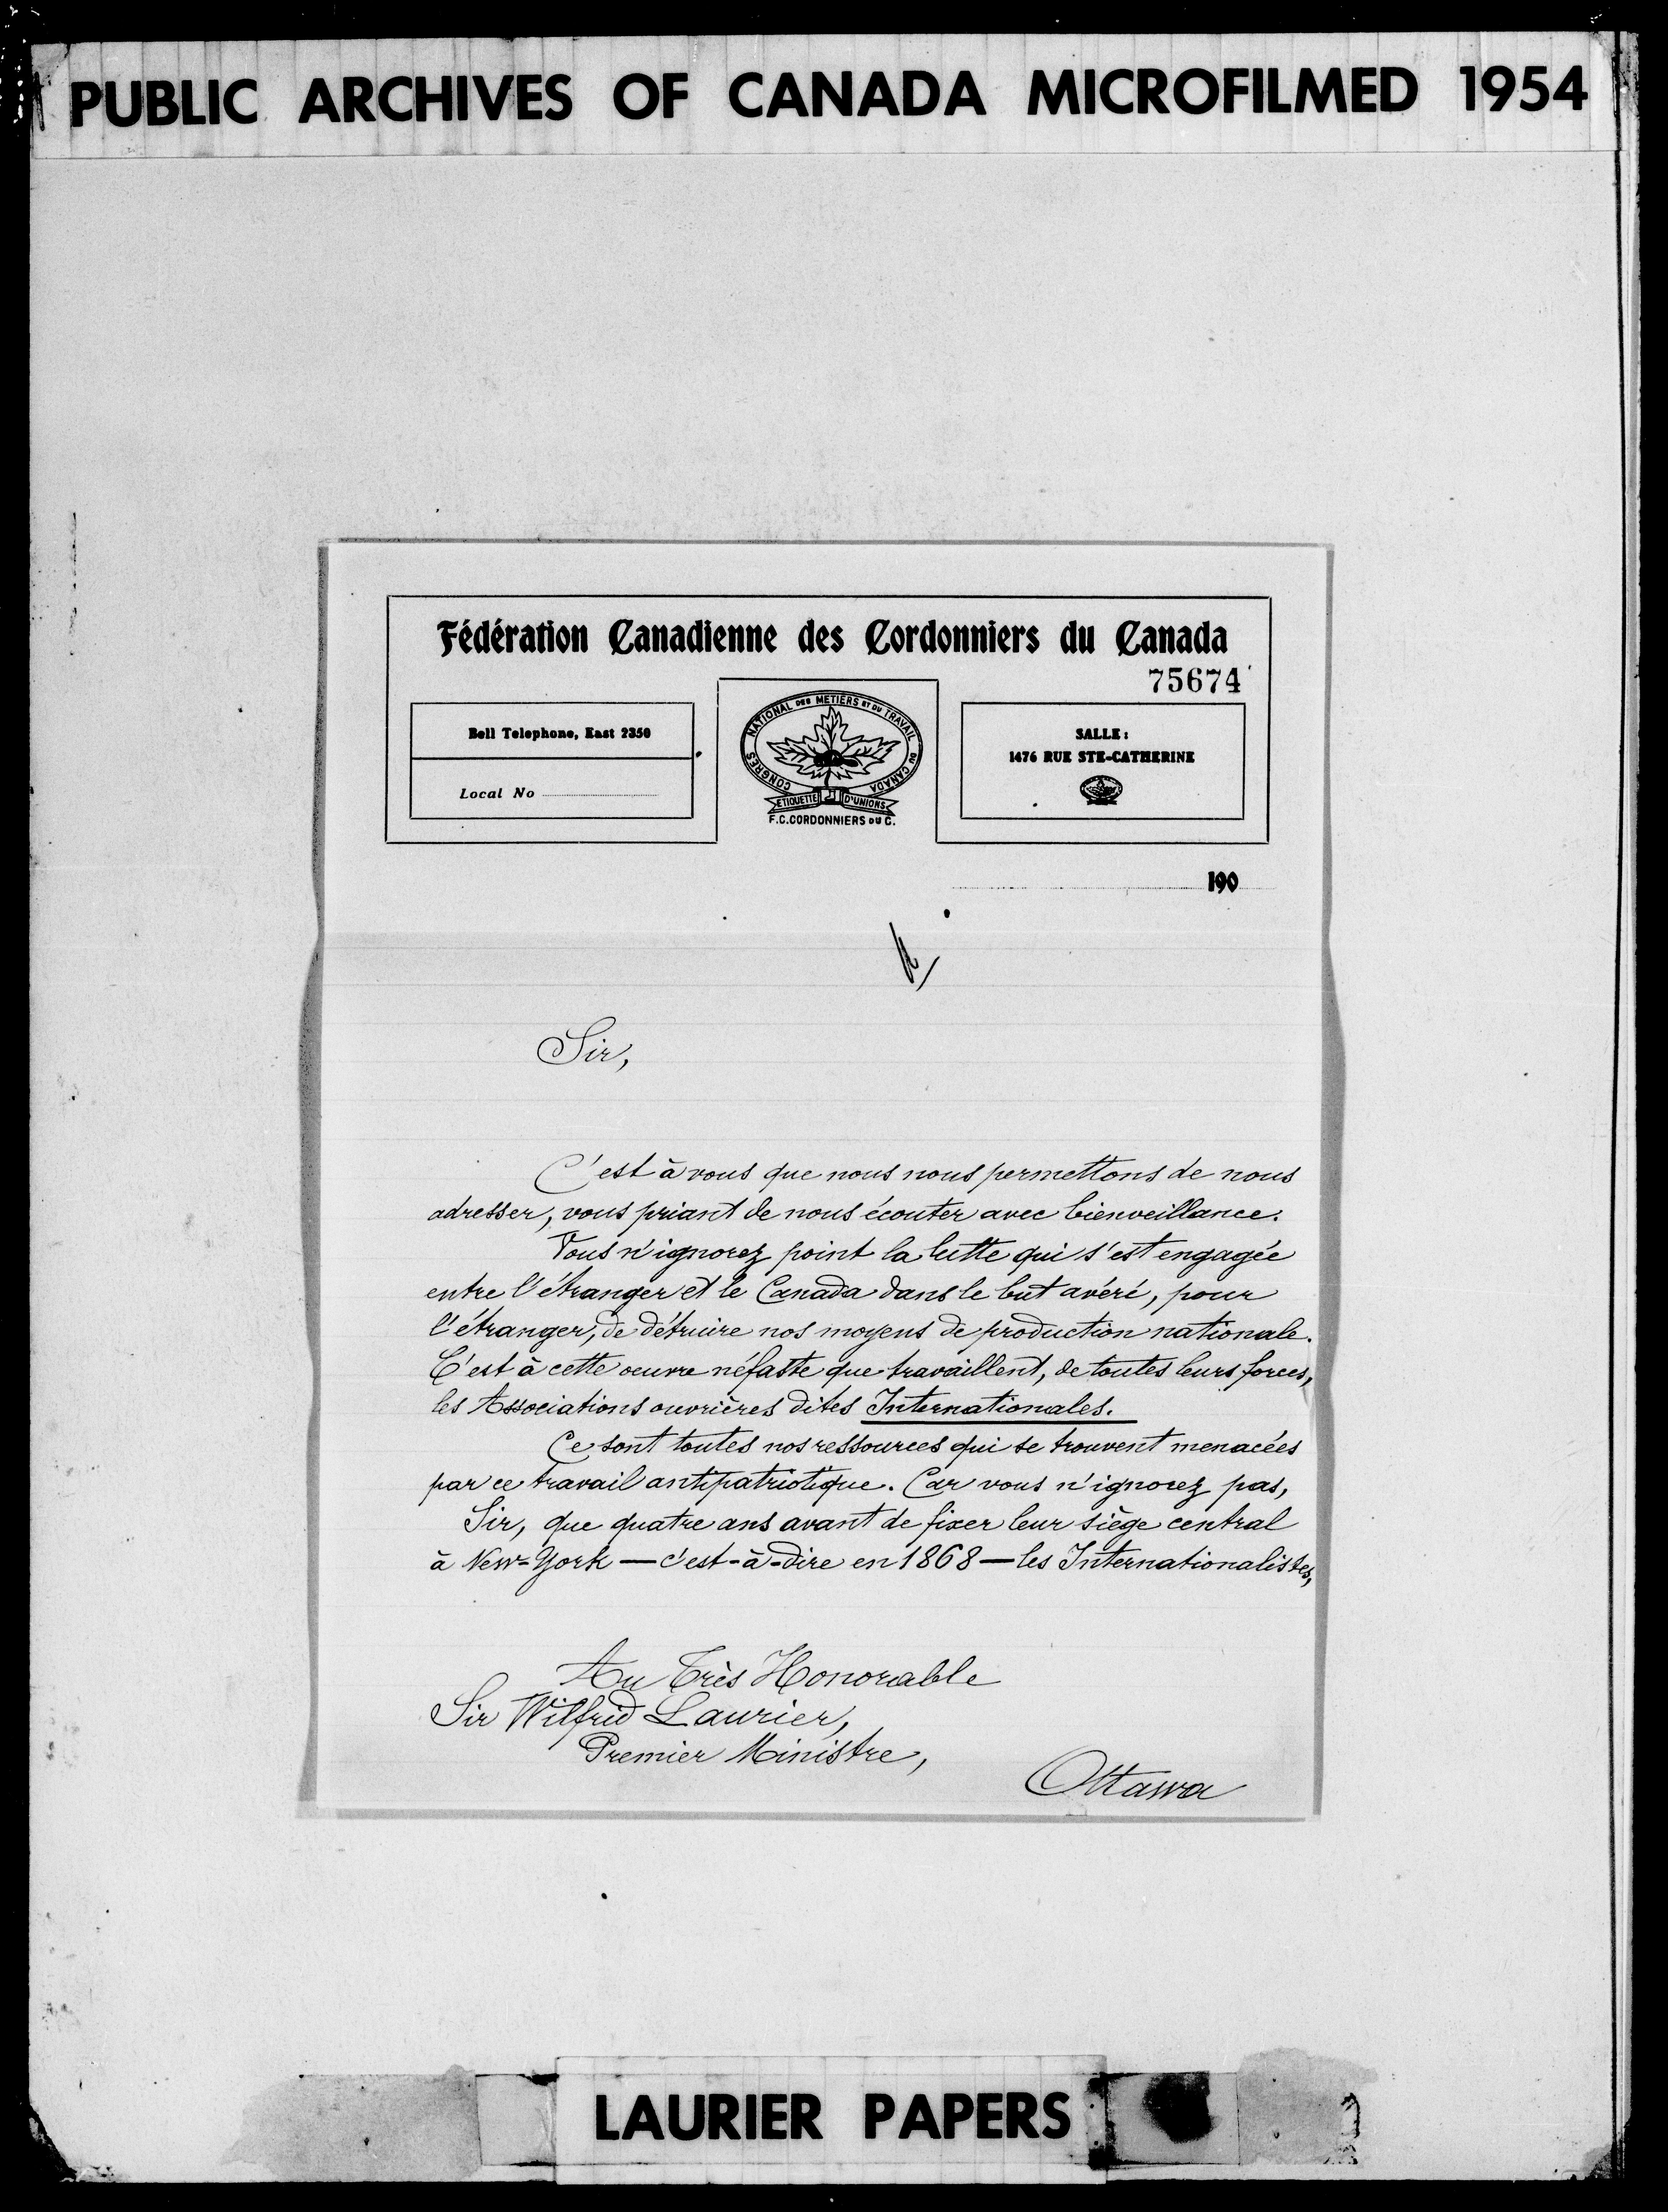 PUBLIC ARCHIVES OF CANADA MICROFILMED 1954
Fédération Canadienne des Cordonniers du Canada
75674
Bell Telephone, East 2350
Local No
CONGRES NATIONAL DES METIERS ET DU TRAVAIL DU CANADA
ETIQUETTE D'UNIONS
F.C.CORDONNIERS DU C.
SALLE:
1476 RUE STE-CATHERINE
190
Sir,
C'est à vous que nous nous permettons de nous
adresser, vous priant de nous écouter avec bienveillance.
Vous n'ignorez point la lutte qui s'est engagée
entre l'étranger et le Canada dans le but avéré, pour
l'étranger, de détruire nos moyens de production nationale.
C'est à cette oeuvre néfaste que travaillent, de toutes leurs forces,
les Associations ouvrières dites Internationales.
Ce sont toutes nos ressources qui se trouvent menacées
par ce travail antipatriotique. Car vous n'ignorez pas,
Sir, que quatre ans avant de fixer leur siège central
à New-York — c'est-à-dire en 1868 — les Internationalistes,
Au Très Honorable
Sir Wilfrid Laurier,
Premier Ministre,
Ottawa
LAURIER PAPERS